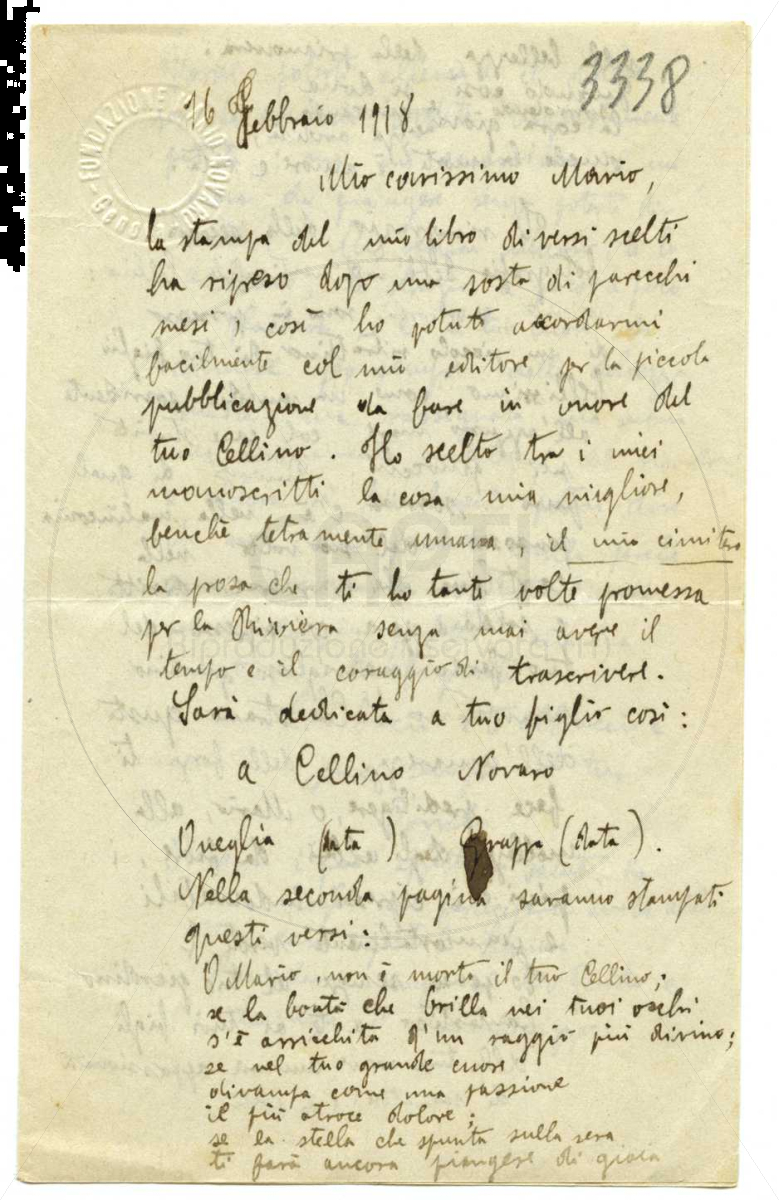 3338
FONDAZIONE MARIO NOVARO
16 Febbraio 1918
Mio carissimo Mario,
la stampa del mio libro di versi scelti
ha ripreso dopo una sosta di parecchi
mesi, così ho potuto accordarmi
facilmente col mio editore per la piccola
pubblicazione da fare in onore del
tuo Cellino. Ho scelto tra i miei
manoscritti la cosa mia migliore,
benchè tetramente umana, il mio cimitero
la prosa che ti ho tante volte promessa
per la Riviera senza mai avere il
tempo e il coraggio di trascrivere.
Sarà dedicata a tuo figlio così:
a Cellino Novaro
Oneglia (data) Grappa (data).
Nella seconda pagina saranno stampati
questi versi:
O Mario, non è morto il tuo Cellino;
se la bontà che brilla nei tuoi occhi
s'è arricchita d'un raggio più divino;
se nel tuo grande cuore
divampa come una passione
il più atroce dolore;
se la stella che spunta sulla sera
ti farà ancora piangere di gioia